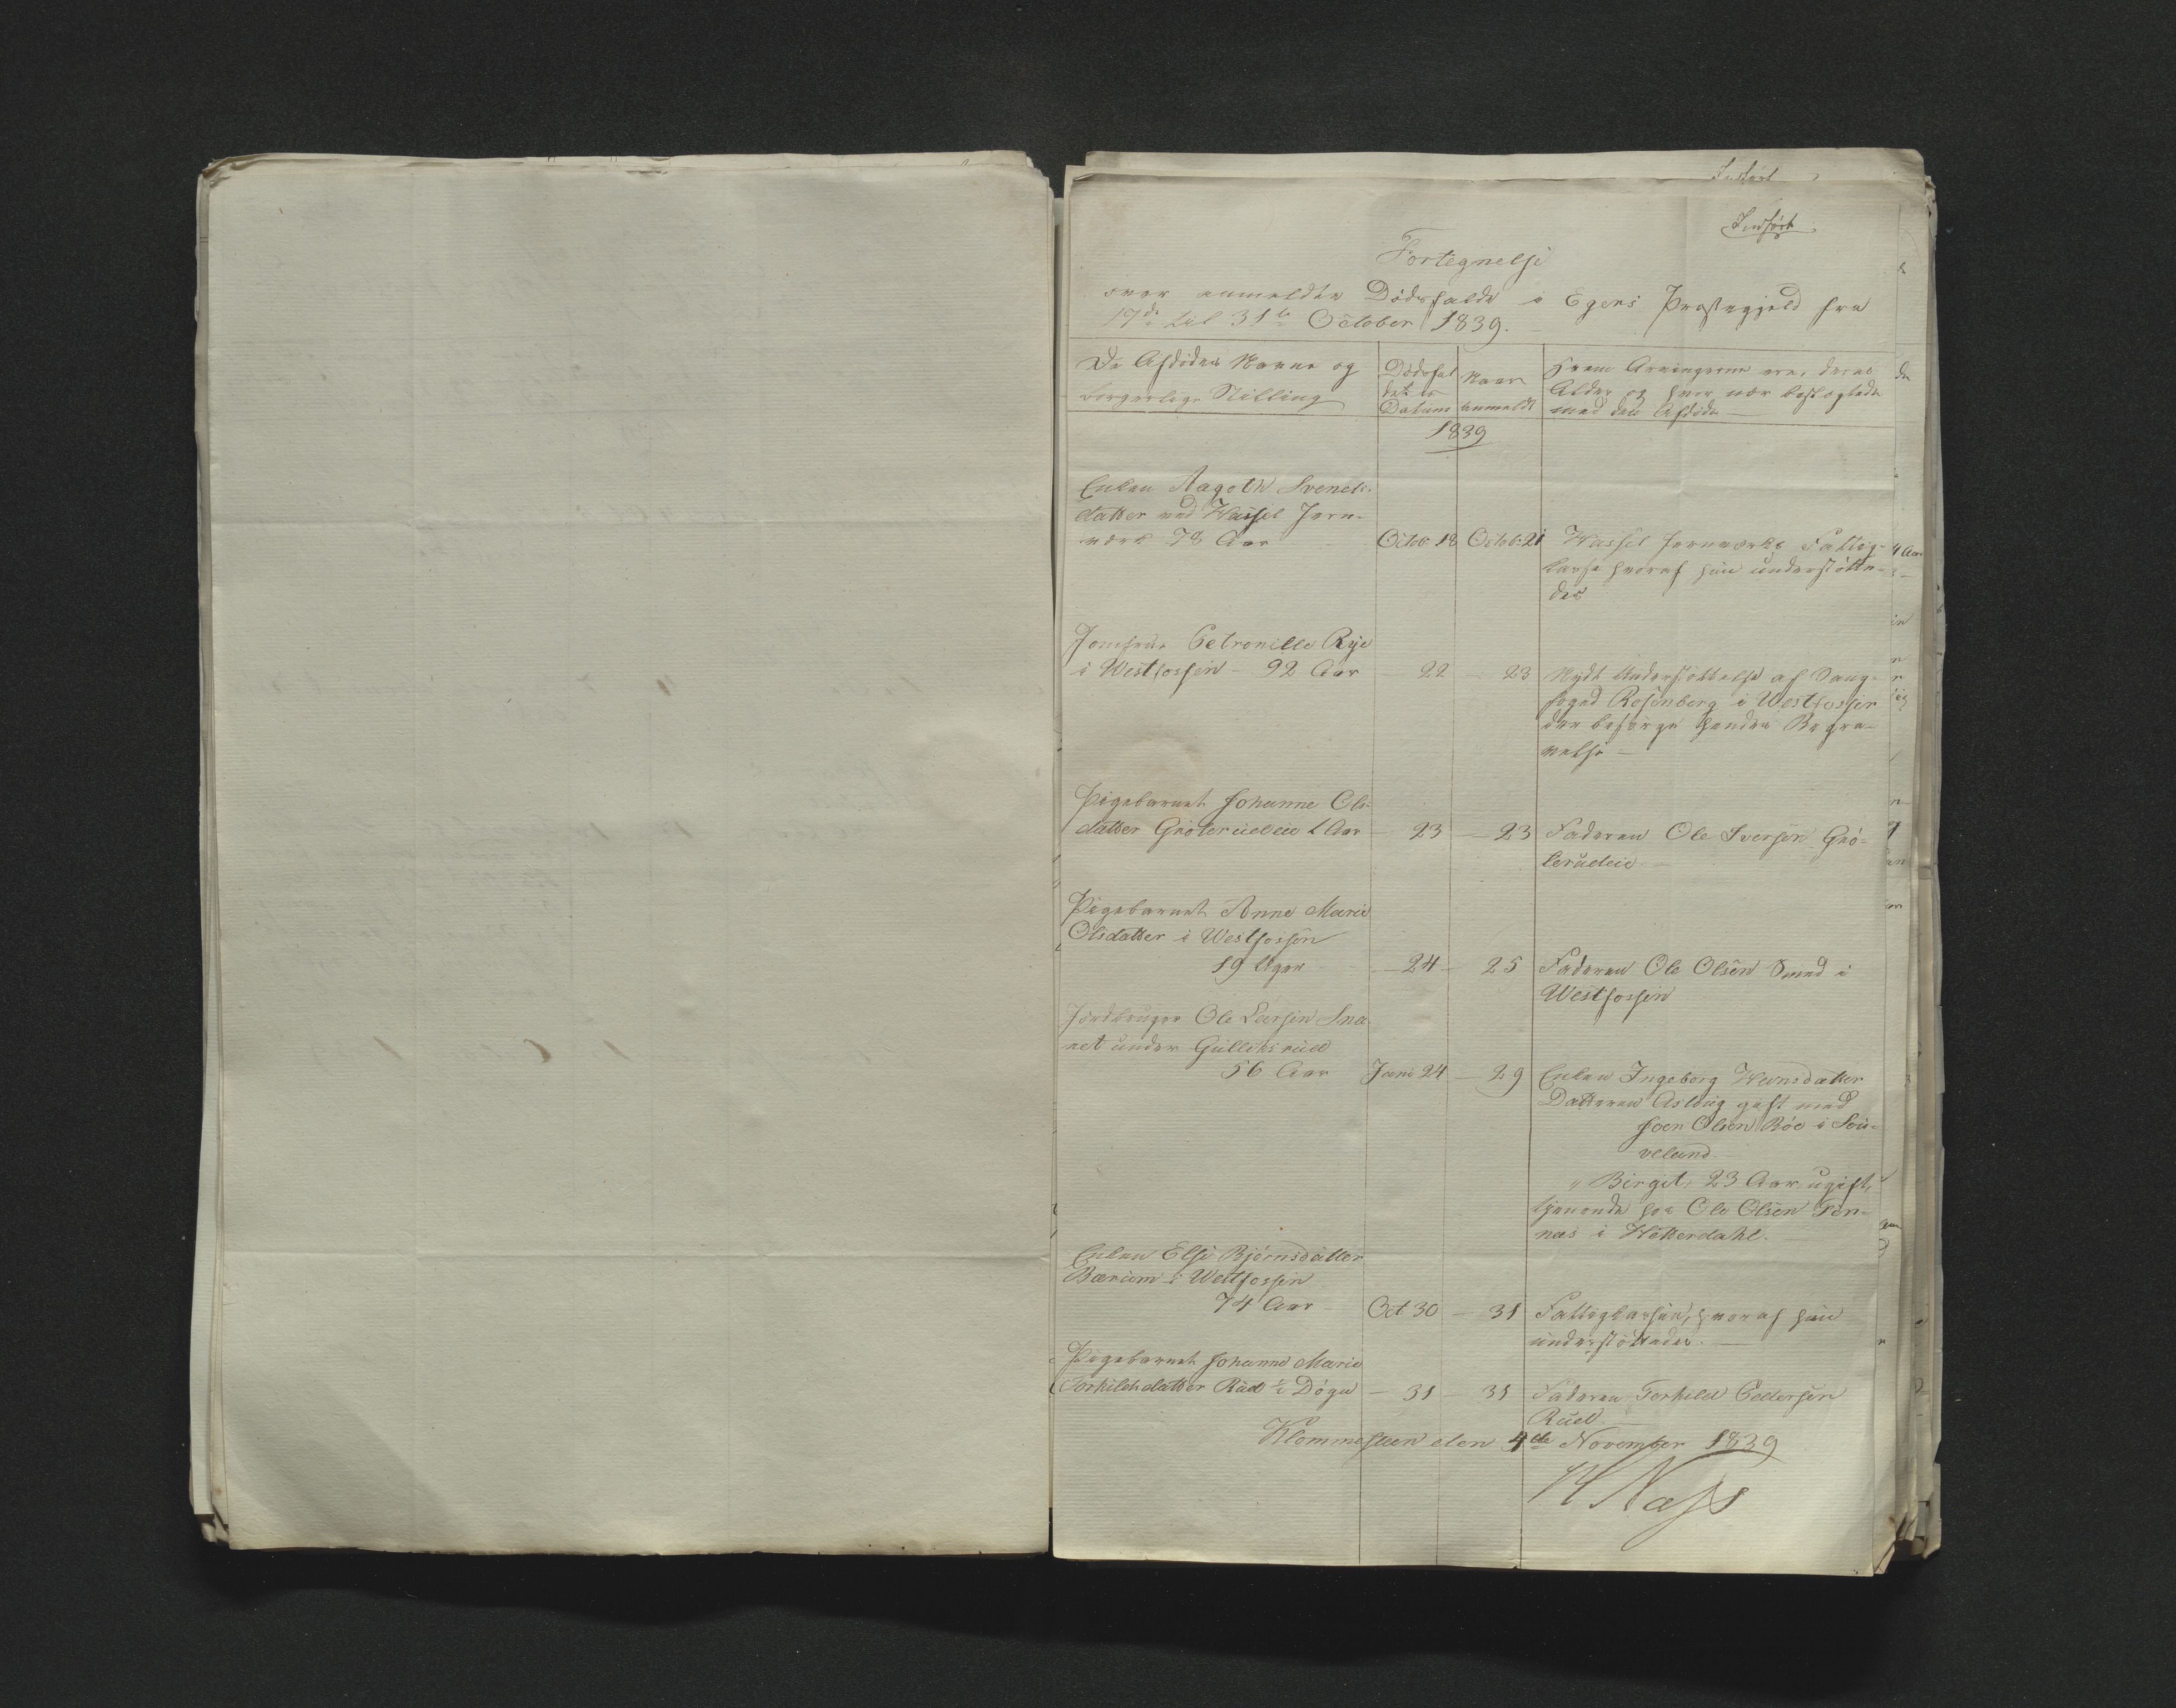 Indført
Fortegnelse
over anmeldte Dødsfalde i Egers Præstegjeld fra
17de til 31te October 1839.
De Afdødes Navne og
borgerlige Stilling
Dødsfal
dets
Datum
Naar
anmeldt
Hvem Arvingerne ere, deres
Alder og hvor nær beslægtede
med den Afdøde
1839
Enken Aagoth Svends-
datter ved Hassel Jern-
værk 78 Aar
Octob 18
Octob 21
Hassel Jernværks Fattig-
kasse hvoraf hun understøtte-
des
Jomfrue Petronille Rye
i Westfossen - 92 Aar
- 22
- 23
Nydt Understøttelse af
foged Rosenberg i Westfossen
der besørge hendes Begra-
velse -
Pigebarnet Johanne Ols-
datter Grøterudeie 1 Aar
- 23
- 23
Faderen Ole Iversen Grø-
terudeie -
Pigebarnet Anne Marie
Olsdatter i Westfossen
19 Uger
- 24
- 25
Faderen Ole Olsen Smed i
Westfossen
Jordbruger Ole Larsen Sna-
ret under Gulliksrud
56 Aar
Juni 24
- 29
Enken Ingeborg Hansdatter
Datteren Asloug gift med
Joen Olsen Røe i Sou-
veland
" Birgit, 23 Aar, ugift,
tjenende hos Ole Olsen
i Hitterdahl.
Enken Else Bjørnsdatter
Bærum i Westfossen
74 Aar
Oct 30
- 31
Fattigkassen, hvoraf hun
understøttedes. -
Pigebarnet Johanne Marie
Torkildsdatter Rud ½ Døgn
- 31
- 31
Faderen Torkild Pedersen
Rud
Klommesteen den 4de November 1839
H Næss